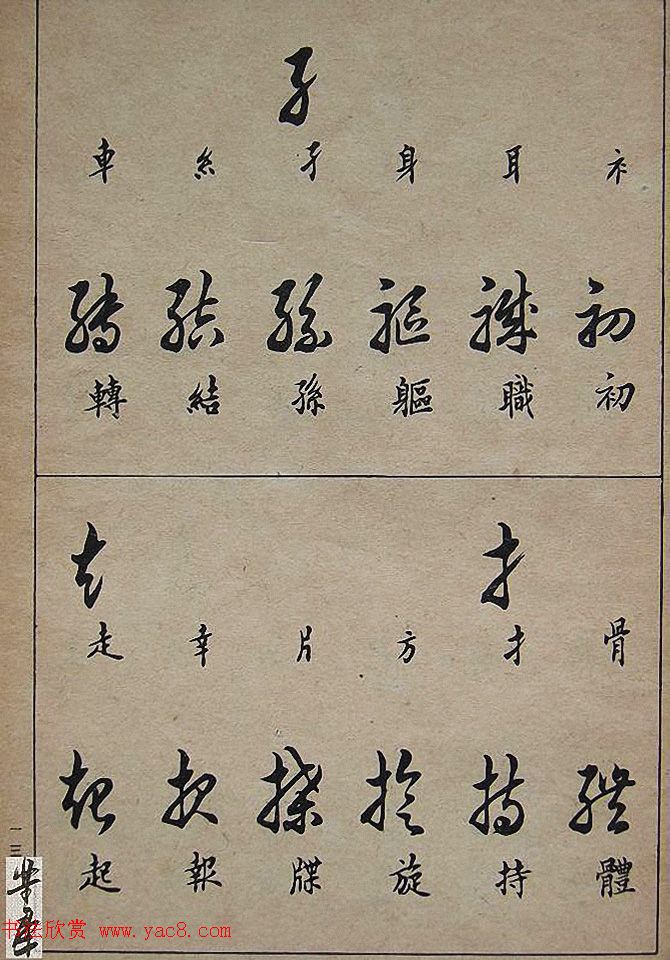 子
衤 耳 身 子 糸 車
初 職 軀 孫 結 轉
初 職 軀 孫 結 轉
扌 走
骨 扌 方 片 幸 走
體 持 旋 牒 報 起
體 持 旋 牒 報 起
一三
书法欣赏 www.yac8.com